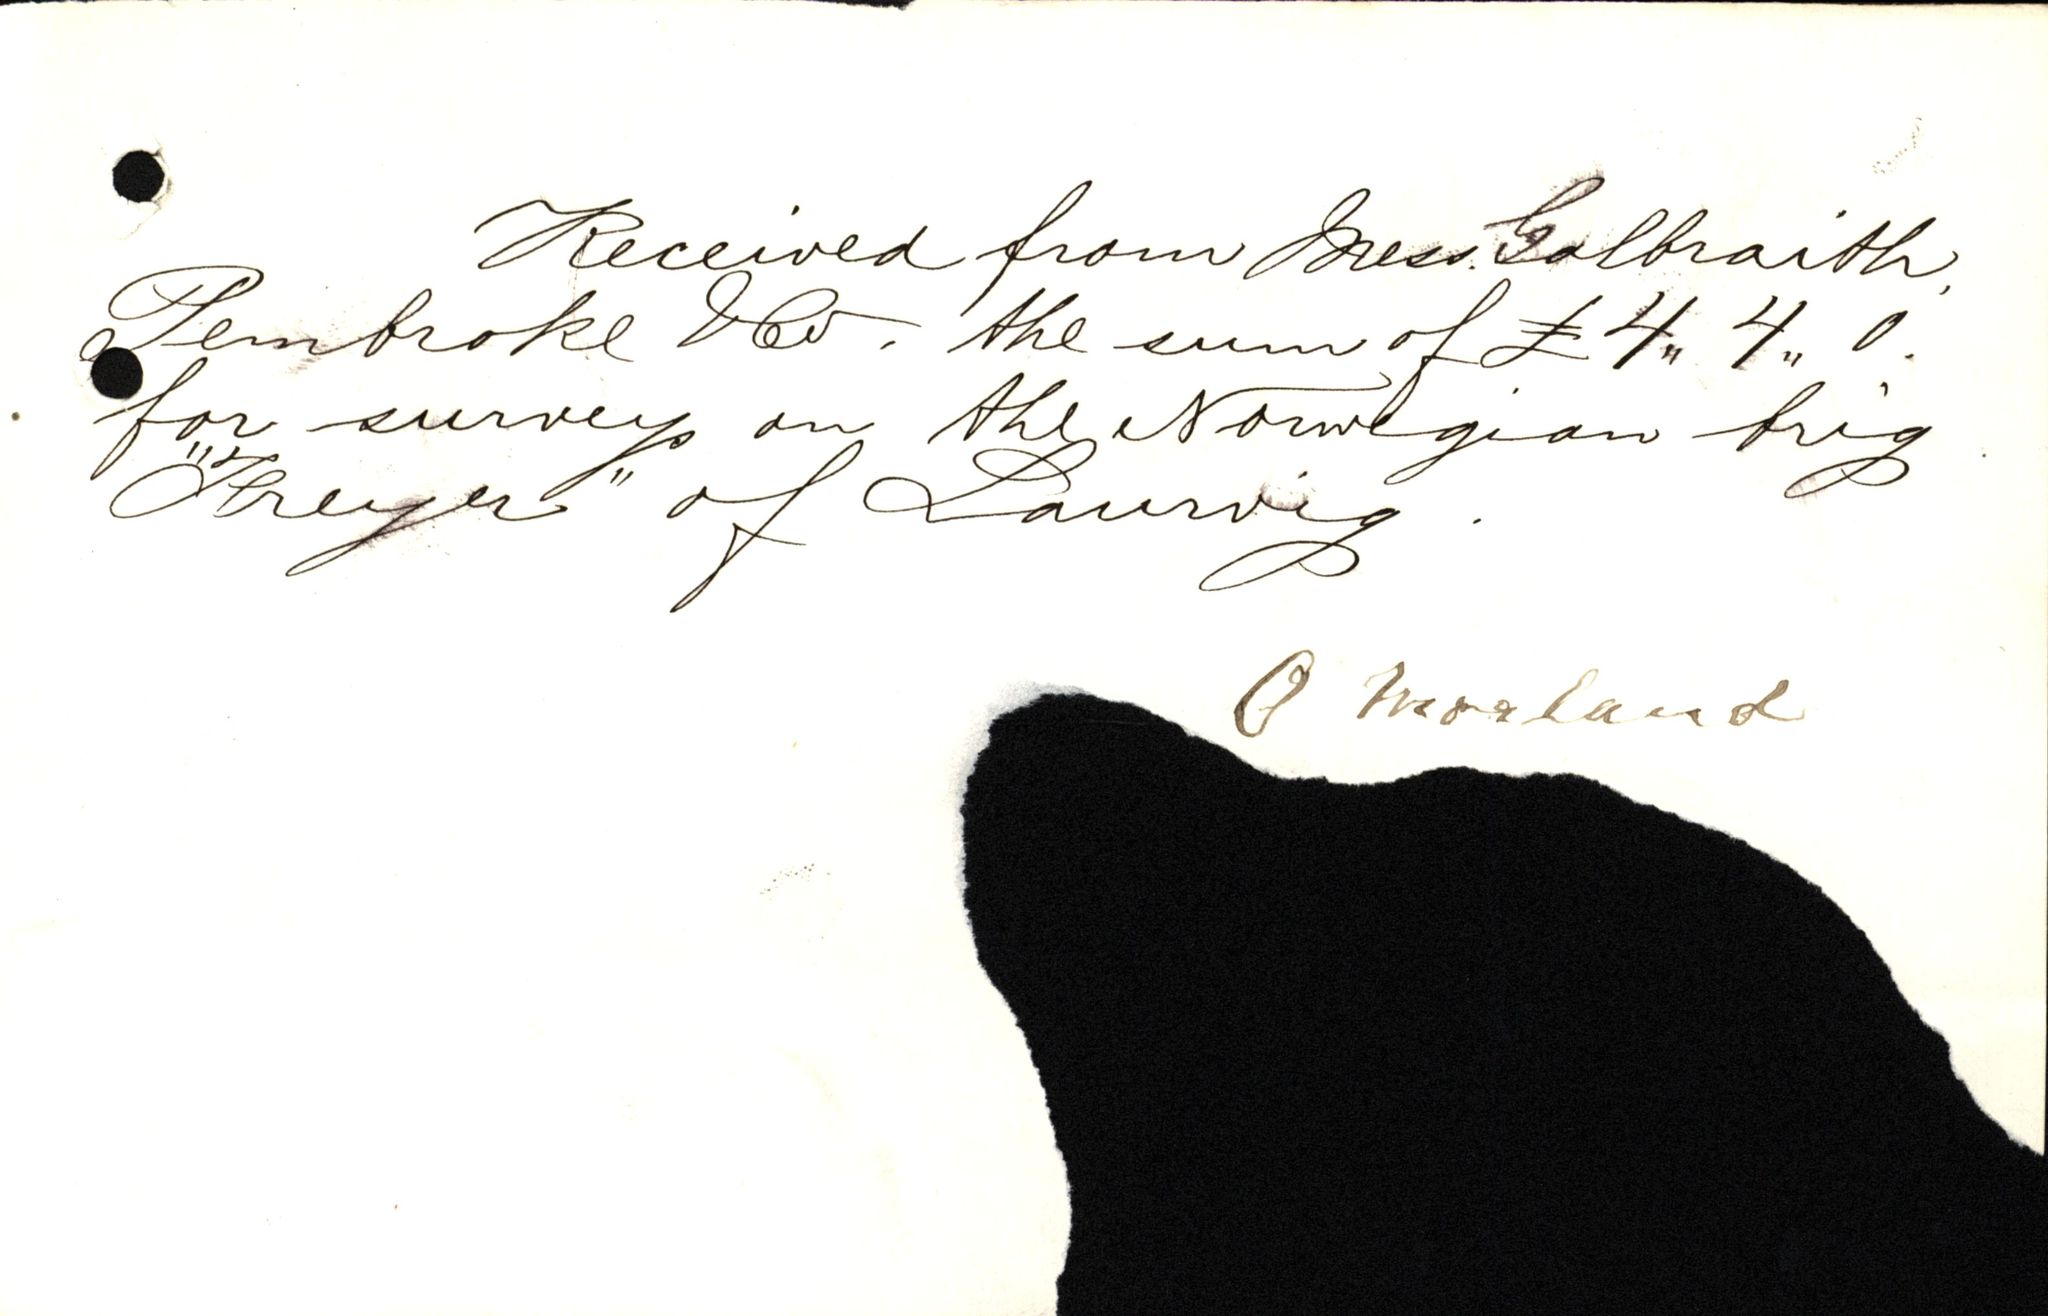 Received from Mess. Galbraith,
Pembroke & Co. the sum of £ 4„ 4„ 0.
for survey on the Norwegian brig
„Freyer" of Laurvig.
O Morland